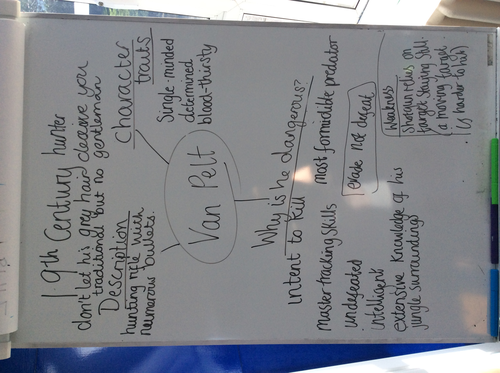 19th Century hunter
don't let his grey hair decieve you
traditional but no gentleman
Description
hunting rifle with
neumorous bullets
Character
traits
Single-minded
determined
blood-thirsty
Van Pelt
Why is he dangerous?
intent to kill
most formidible predator
master tracking skills
undefeated
intelligent
extensive knowledge of his
jungle surroundings
evade not defeat
Weakness
Shotgun relies on
target staying still.
(a moving target
is harder to hit)